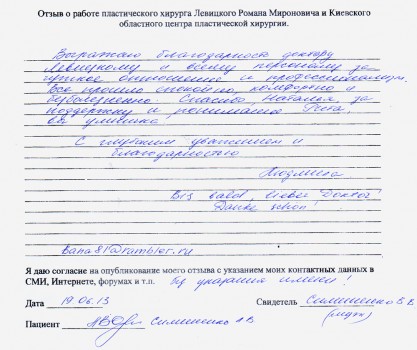 Отзыв о работе пластического хирурга Левицкого Романа Мироновича и Киевского
областного центра пластической хирургии.
Выражаю благодарность доктору
Левицкому и всему персоналу за
чуткое отношение и профессионализм.
Все прошло спокойно, комфортно и
безболезненно. Спасибо Наталья, за
поддержку и понимание
вы умнички
С глубоким уважением и
благодарностью
Людмила
Bis bald, lieber Doktor!
Danke schön!
bana81@rambler.ru
Я даю согласие на опубликование моего отзыва с указанием моих контактных данных в
СМИ, Интернете, форумах и т.п. без указания имени!
Дата 19.06.13 Свидетель Симиненко В.В
Пациент Симиненко А.В